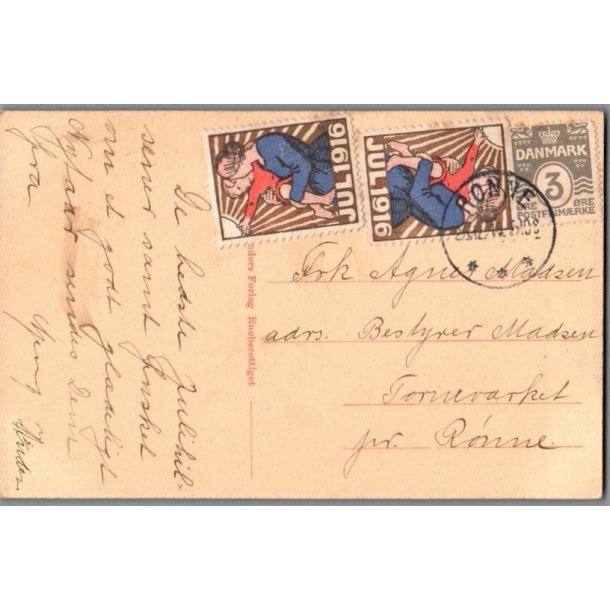 De bedste Julehil-
sener samt Ønsket
om et godt glædeligt
Nytaar sendes Dem
fra
JUL 1916
JUL 1916
DANMARK
3
ØRE
POSTFRIMÆRKE
RØNNE
Frk Agnes Madsen
adrs. Bestyrer Madsen
Torneværket
pr. Rønne.
Forlag Eneberettiget